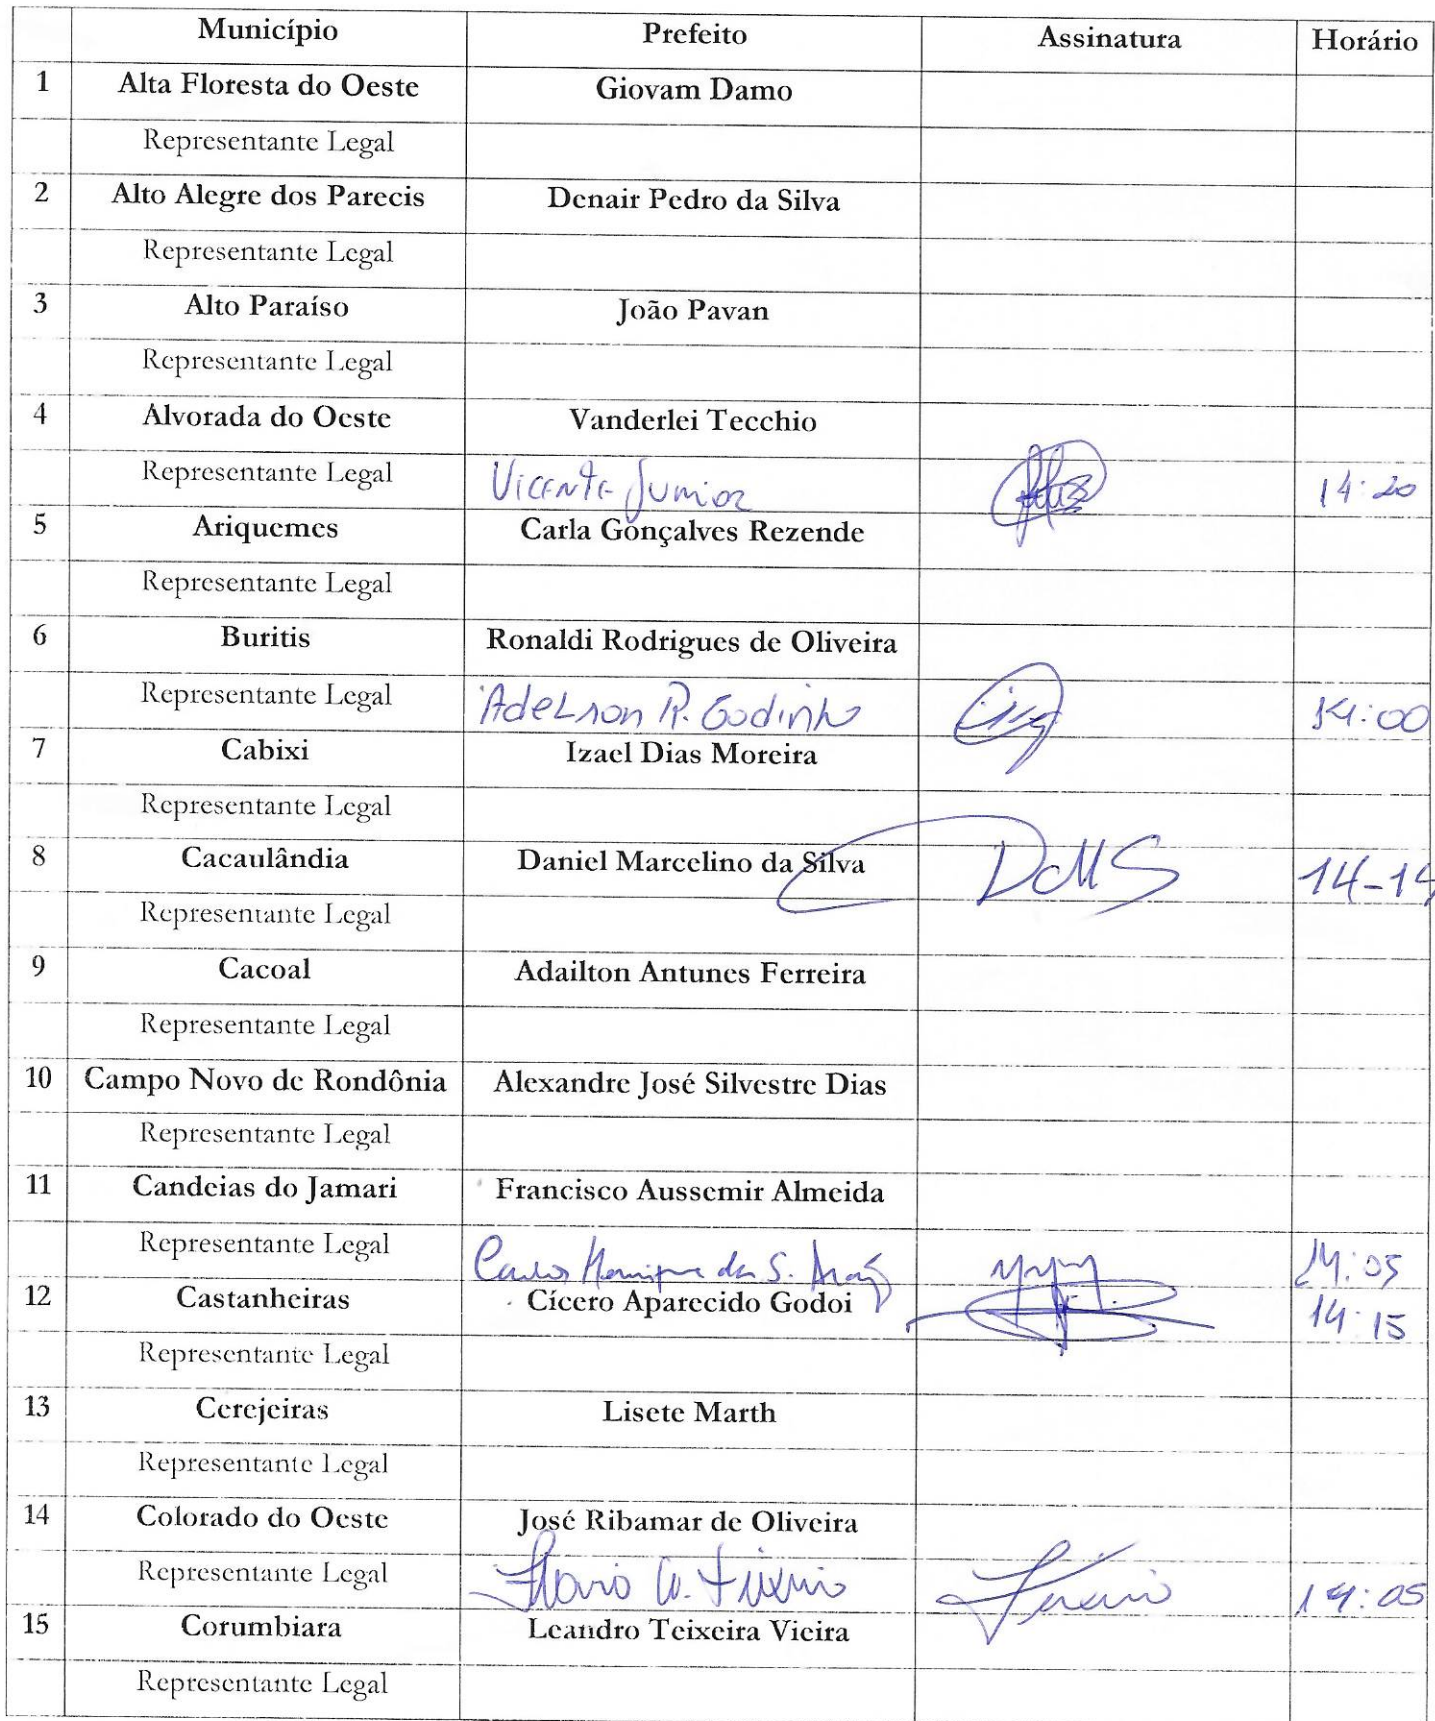 Município Prefeito Assinatura Horário
1 Alta Floresta do Oeste Giovam Damo
Representante Legal
2 Alto Alegre dos Parecis Denair Pedro da Silva
Representante Legal
3 Alto Paraíso João Pavan
Representante Legal
4 Alvorada do Oeste Vanderlei Tecchio
Representante Legal Vicente Junior 14:20
5 Ariquemes Carla Gonçalves Rezende
Representante Legal
6 Buritis Ronaldi Rodrigues de Oliveira
Representante Legal Adelson R. Godinho 14:00
7 Cabixi Izael Dias Moreira
Representante Legal
8 Cacaulândia Daniel Marcelino da Silva DMS 14-14
Representante Legal
9 Cacoal Adailton Antunes Ferreira
Representante Legal
10 Campo Novo de Rondônia Alexandre José Silvestre Dias
Representante Legal
11 Candeias do Jamari Francisco Aussemir Almeida
Representante Legal Carlos Henrique da S. 14:05
12 Castanheiras Cícero Aparecido Godoi 14:15
Representante Legal
13 Cerejeiras Lisete Marth
Representante Legal
14 Colorado do Oeste José Ribamar de Oliveira
Representante Legal 14:05
15 Corumbiara Leandro Teixeira Vieira
Representante Legal